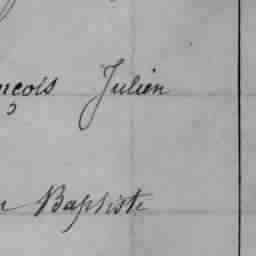 nçois Julien
n Baptiste